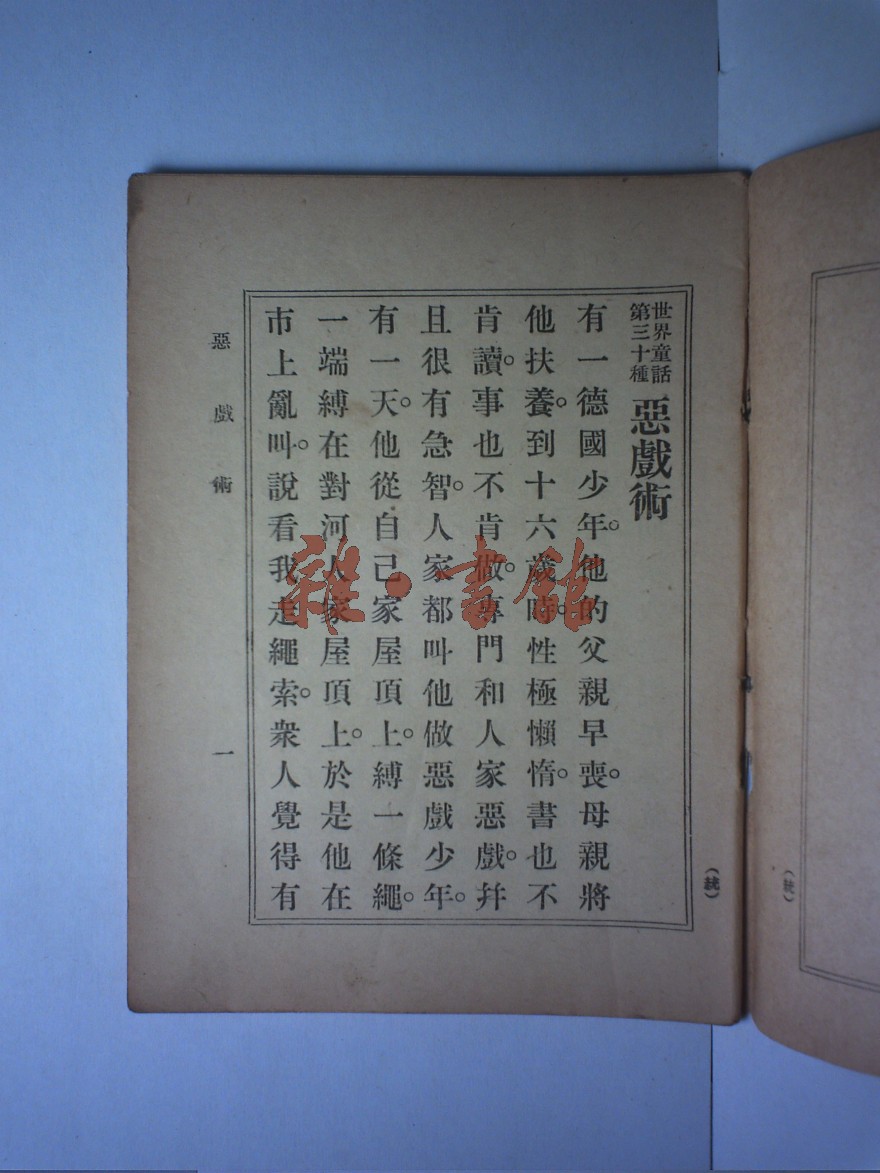 世界童話
第三十種
惡戲術
有一德國少年。他的父親早喪。母親將
他扶養。到十六歲時。性極懶惰。書也不
肯讀。事也不肯做。專門和人家惡戲。幷
且很有急智。人家都叫他做惡戲少年。
有一天。他從自己家屋頂上。縛一條繩。
一端縛在對河人家屋頂上。於是他在
市上亂叫。說看我走繩索。衆人覺得有
惡戲術
一
(統)
(統)
雜·書館